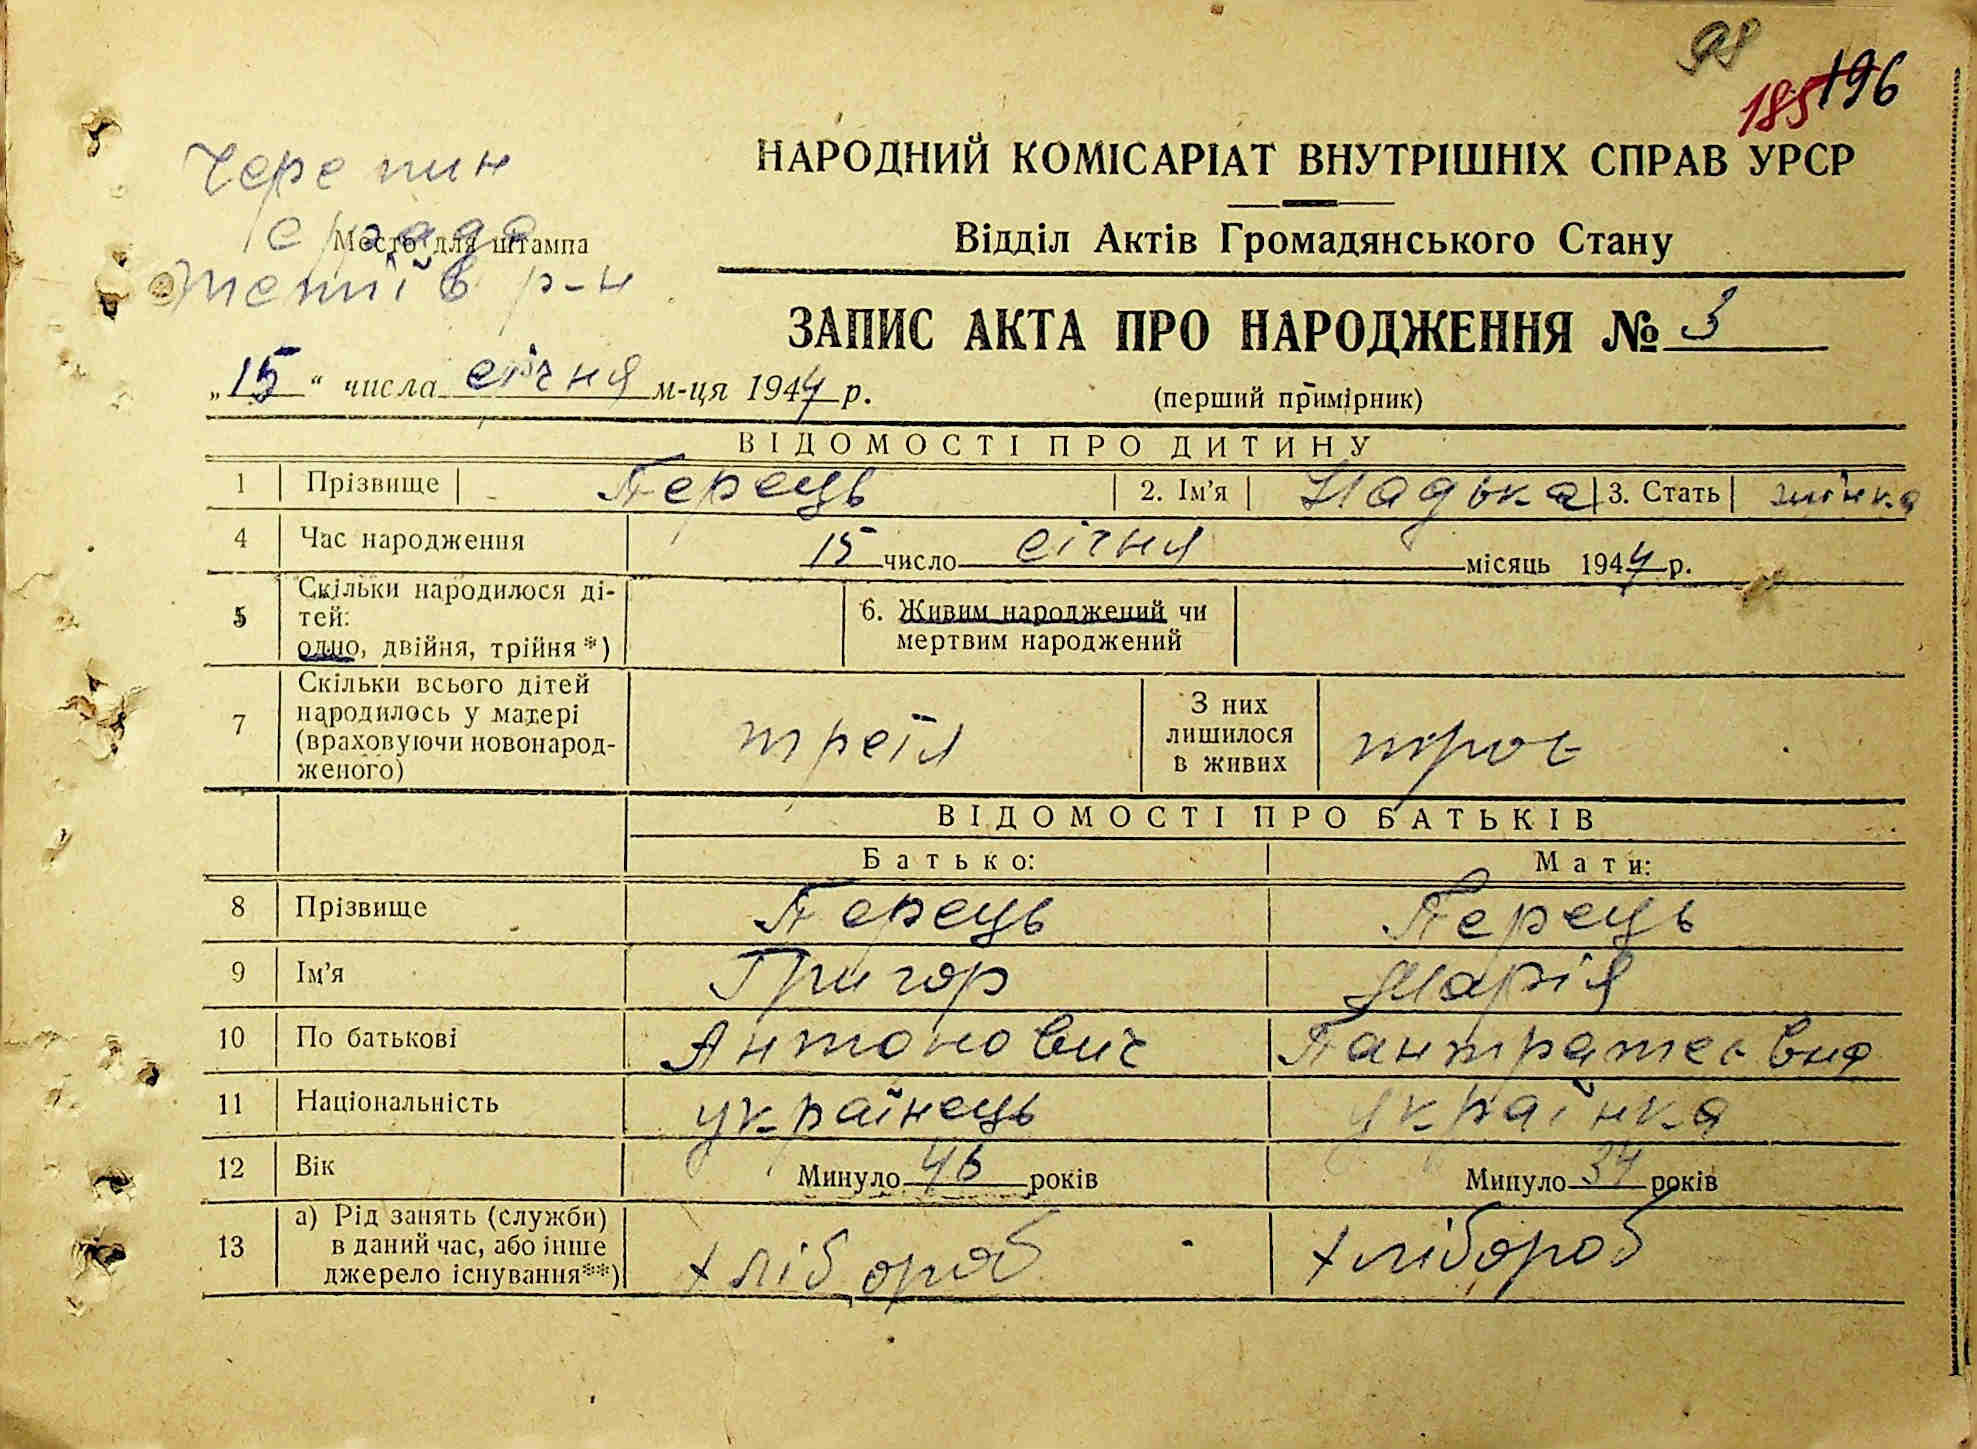 98
185 196
Черепин
НАРОДНИЙ КОМІСАРІАТ ВНУТРІШНІХ СПРАВ УРСР
с рада
Место для штампа
Відділ Актів Громадянського Стану
р-н
ЗАПИС АКТА ПРО НАРОДЖЕННЯ № 3
„15“ числа січня м-ця 1944 р.
(перший примірник)
ВІДОМОСТІ ПРО ДИТИНУ
1 Прізвище Перець 2. Ім'я Надька 3. Стать жінка
4 Час народження 15 число січня місяць 1944 р.
5 Скільки народилося ді-
тей:
одно, двійня, трійня*)
6. Живим народжений чи
мертвим народжений
7 Скільки всього дітей
народилось у матері
(враховуючи новонарод-
женого)
З них
лишилося
в живих
троє
ВІДОМОСТІ ПРО БАТЬКІВ
Батько: Мати:
8 Прізвище Перець Перець
9 Ім'я Григор Марія
10 По батькові Антонович
11 Національність українець українка
12 Вік Минуло 46 років Минуло 34 років
13 а) Рід занять (служби)
в даний час, або інше
джерело існування**)
хлібороб хлібороб